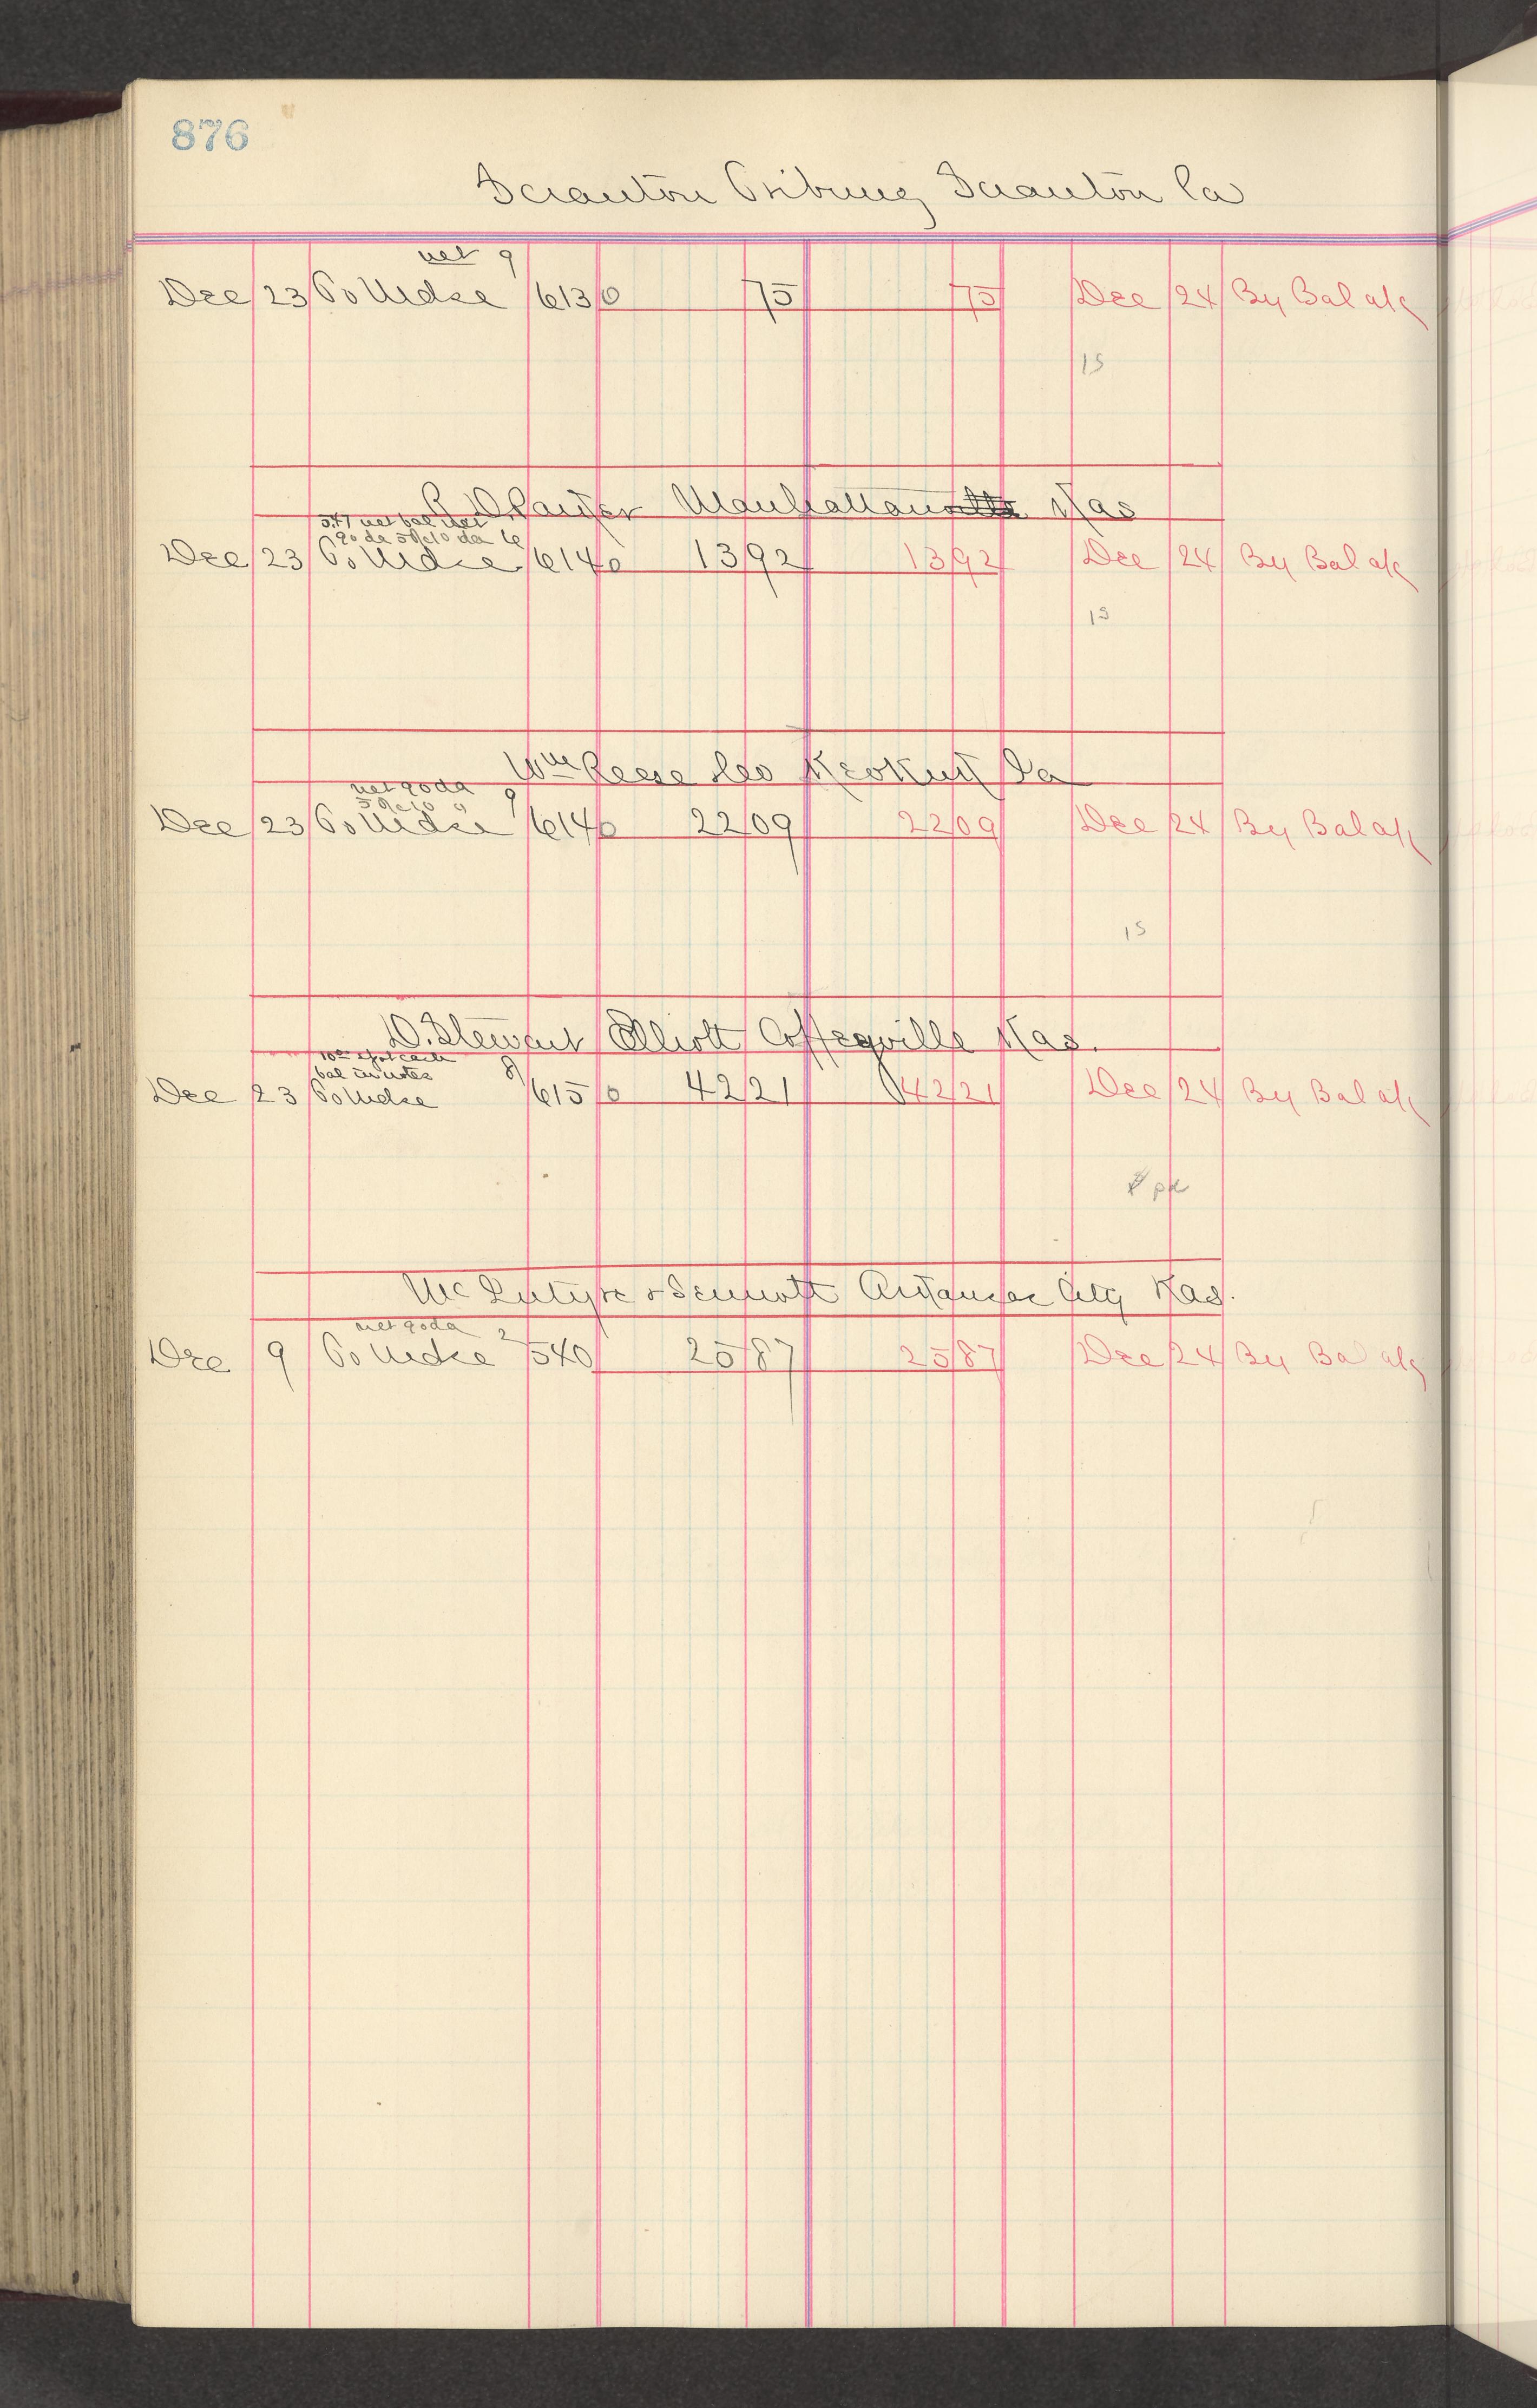 876
Scranton Tribune Scranton Pa
net 9
Dec 23 To Mdse 613 0 75 75 Dec 24 By Bal a/c
15
R. D. Parker Manhattan Kas
5.47 net bal net
90 da 5% 10 da 6
Dec 23 To Mdse 614 0 13 92 13 92 Dec 24 By Bal a/c
15
Wm Reese Keokuk Ia
net 90 da
5% 10 " 9
Dec 23 To Mdse 614 0 22 09 22 09 Dec 24 By Bal a/c
15
D. Stewart Elliott Coffeyville Kas.
10 00 spot cash
bal in notes 8
Dec 23 To Mdse 615 0 42 21 42 21 Dec 24 By Bal a/c
pd
McIntyre & Sennott Arkansas City Kas.
net 90 da 2
Dec 9 To Mdse 540 25 87 25 87 Dec 24 By Bal a/c